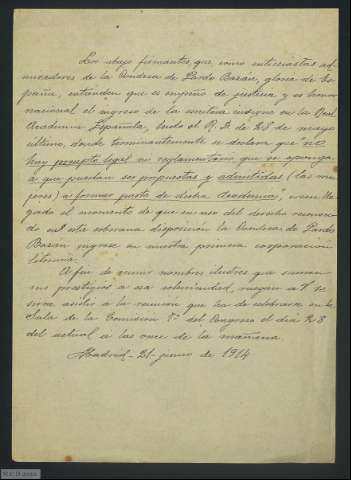 Los abajo firmantes, que, como entusiastas ad-
miradores de la Condesa de Pardo Bazán, gloria de Es-
paña, entienden que es empeño de justicia y es honor
nacional el ingreso de la insigne en la Real
Academia Española, leido el R. D. de 28 de mayo
último, donde terminantemente se declara que no
hay precepto legal ni reglamentario que se oponga
a que puedan ser propuestas y admitidas (las mu-
jeres) a formar parte de dicha Academia", creen lle-
gado el momento de que en uso del derecho recono-
cido en esta soberana disposición la Condesa de Pardo
Bazán ingrese en nuestra primera corporación
literaria.
A fin de reunir nombres ilustres que sumen
sus prestigios a esa solemnidad, ruegan a V. se
sirva asistir a la reunión que ha de celebrarse en la
Sala de la Comisión 1ª del Congreso el dia 28
del actual a las once de la mañana.
Madrid - 21 - junio de 1914